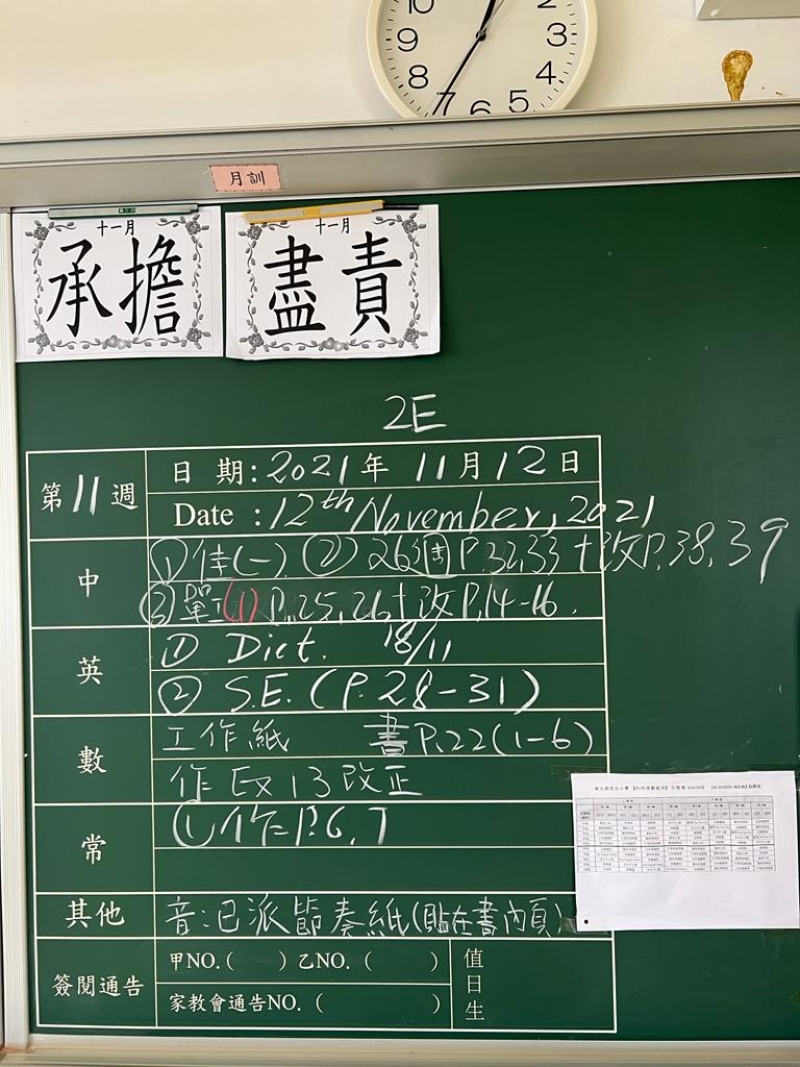 10 2
9 3
8 4
7 6 5
月訓
十一月
承擔
十一月
盡責
2E
第11週
日期:2021年11月12日
Date :12th November, 2021
中
①佳(一) ② 26週 P.32,33+改P.38,39
③單二(1) P.25,26+改P.14-16.
英
① Dict. 18/11
② S.E. (P.28-31)
數
工作紙 書P.22(1-6)
作Ex13改正
常
①作二P.6,7
其他
音:已派節奏紙(貼在書內頁)
簽閱通告
甲NO.( )乙NO.( )
家教會通告NO.( )
值日生